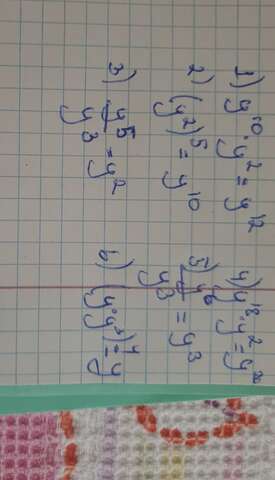 1) y¹⁰·y²=y¹²
2) (y²)⁵=y¹⁰
3) y⁵/y³=y²
4) y¹⁸·y²=y²
5) y⁶/y³=y³
6) (y·y³)⁴=y